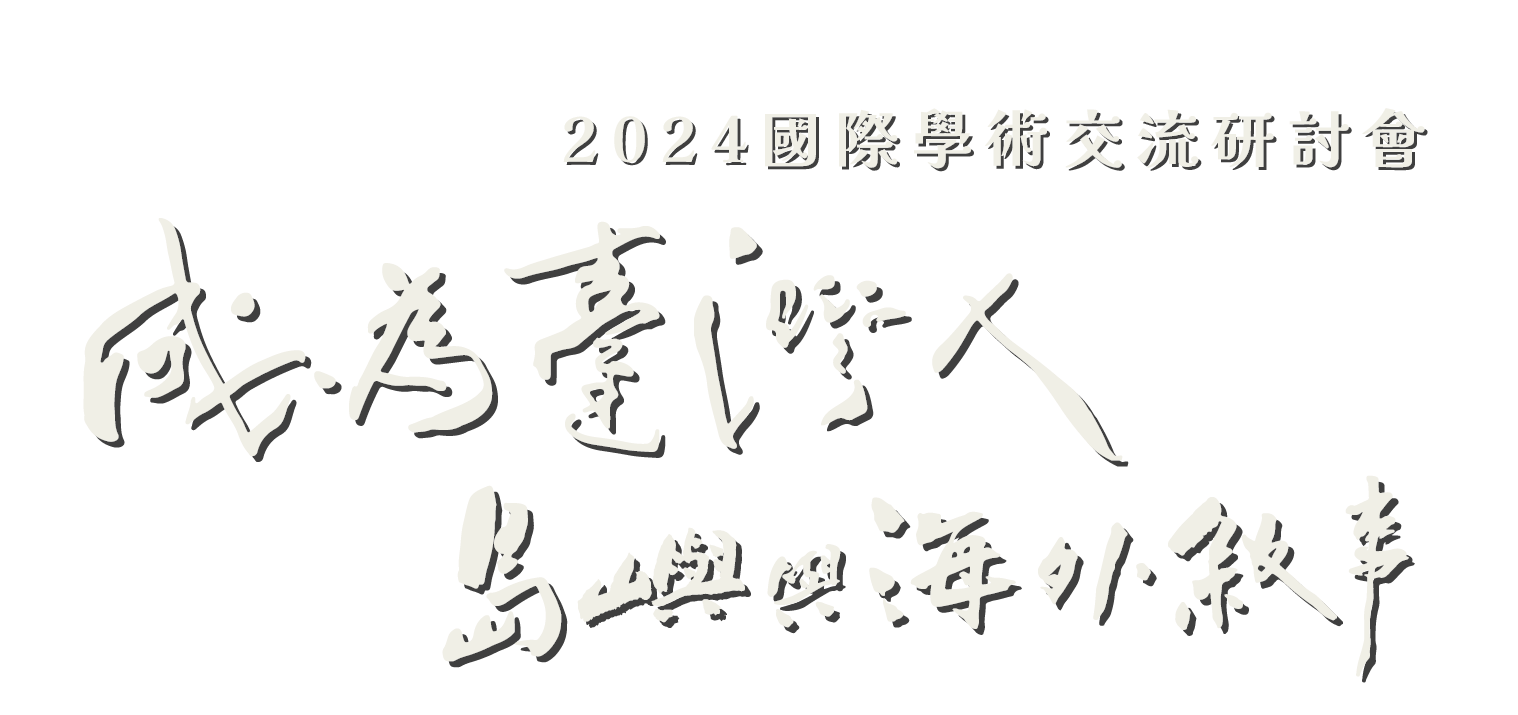 2024國際學術交流研討會
成為臺灣人
島嶼與海外敘事